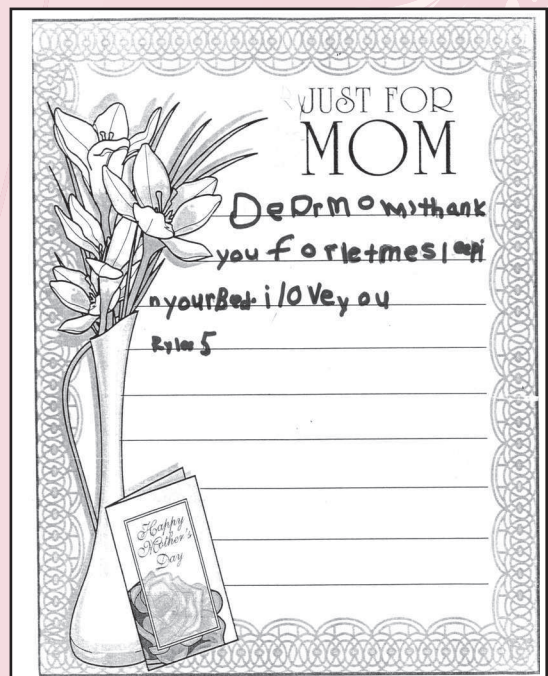 JUST FOR
MOM
DeDrMoM,thank
you forletmesleepi
nyourBed. i lOVeyou
Rylee 5
Happy
Mother's
Day